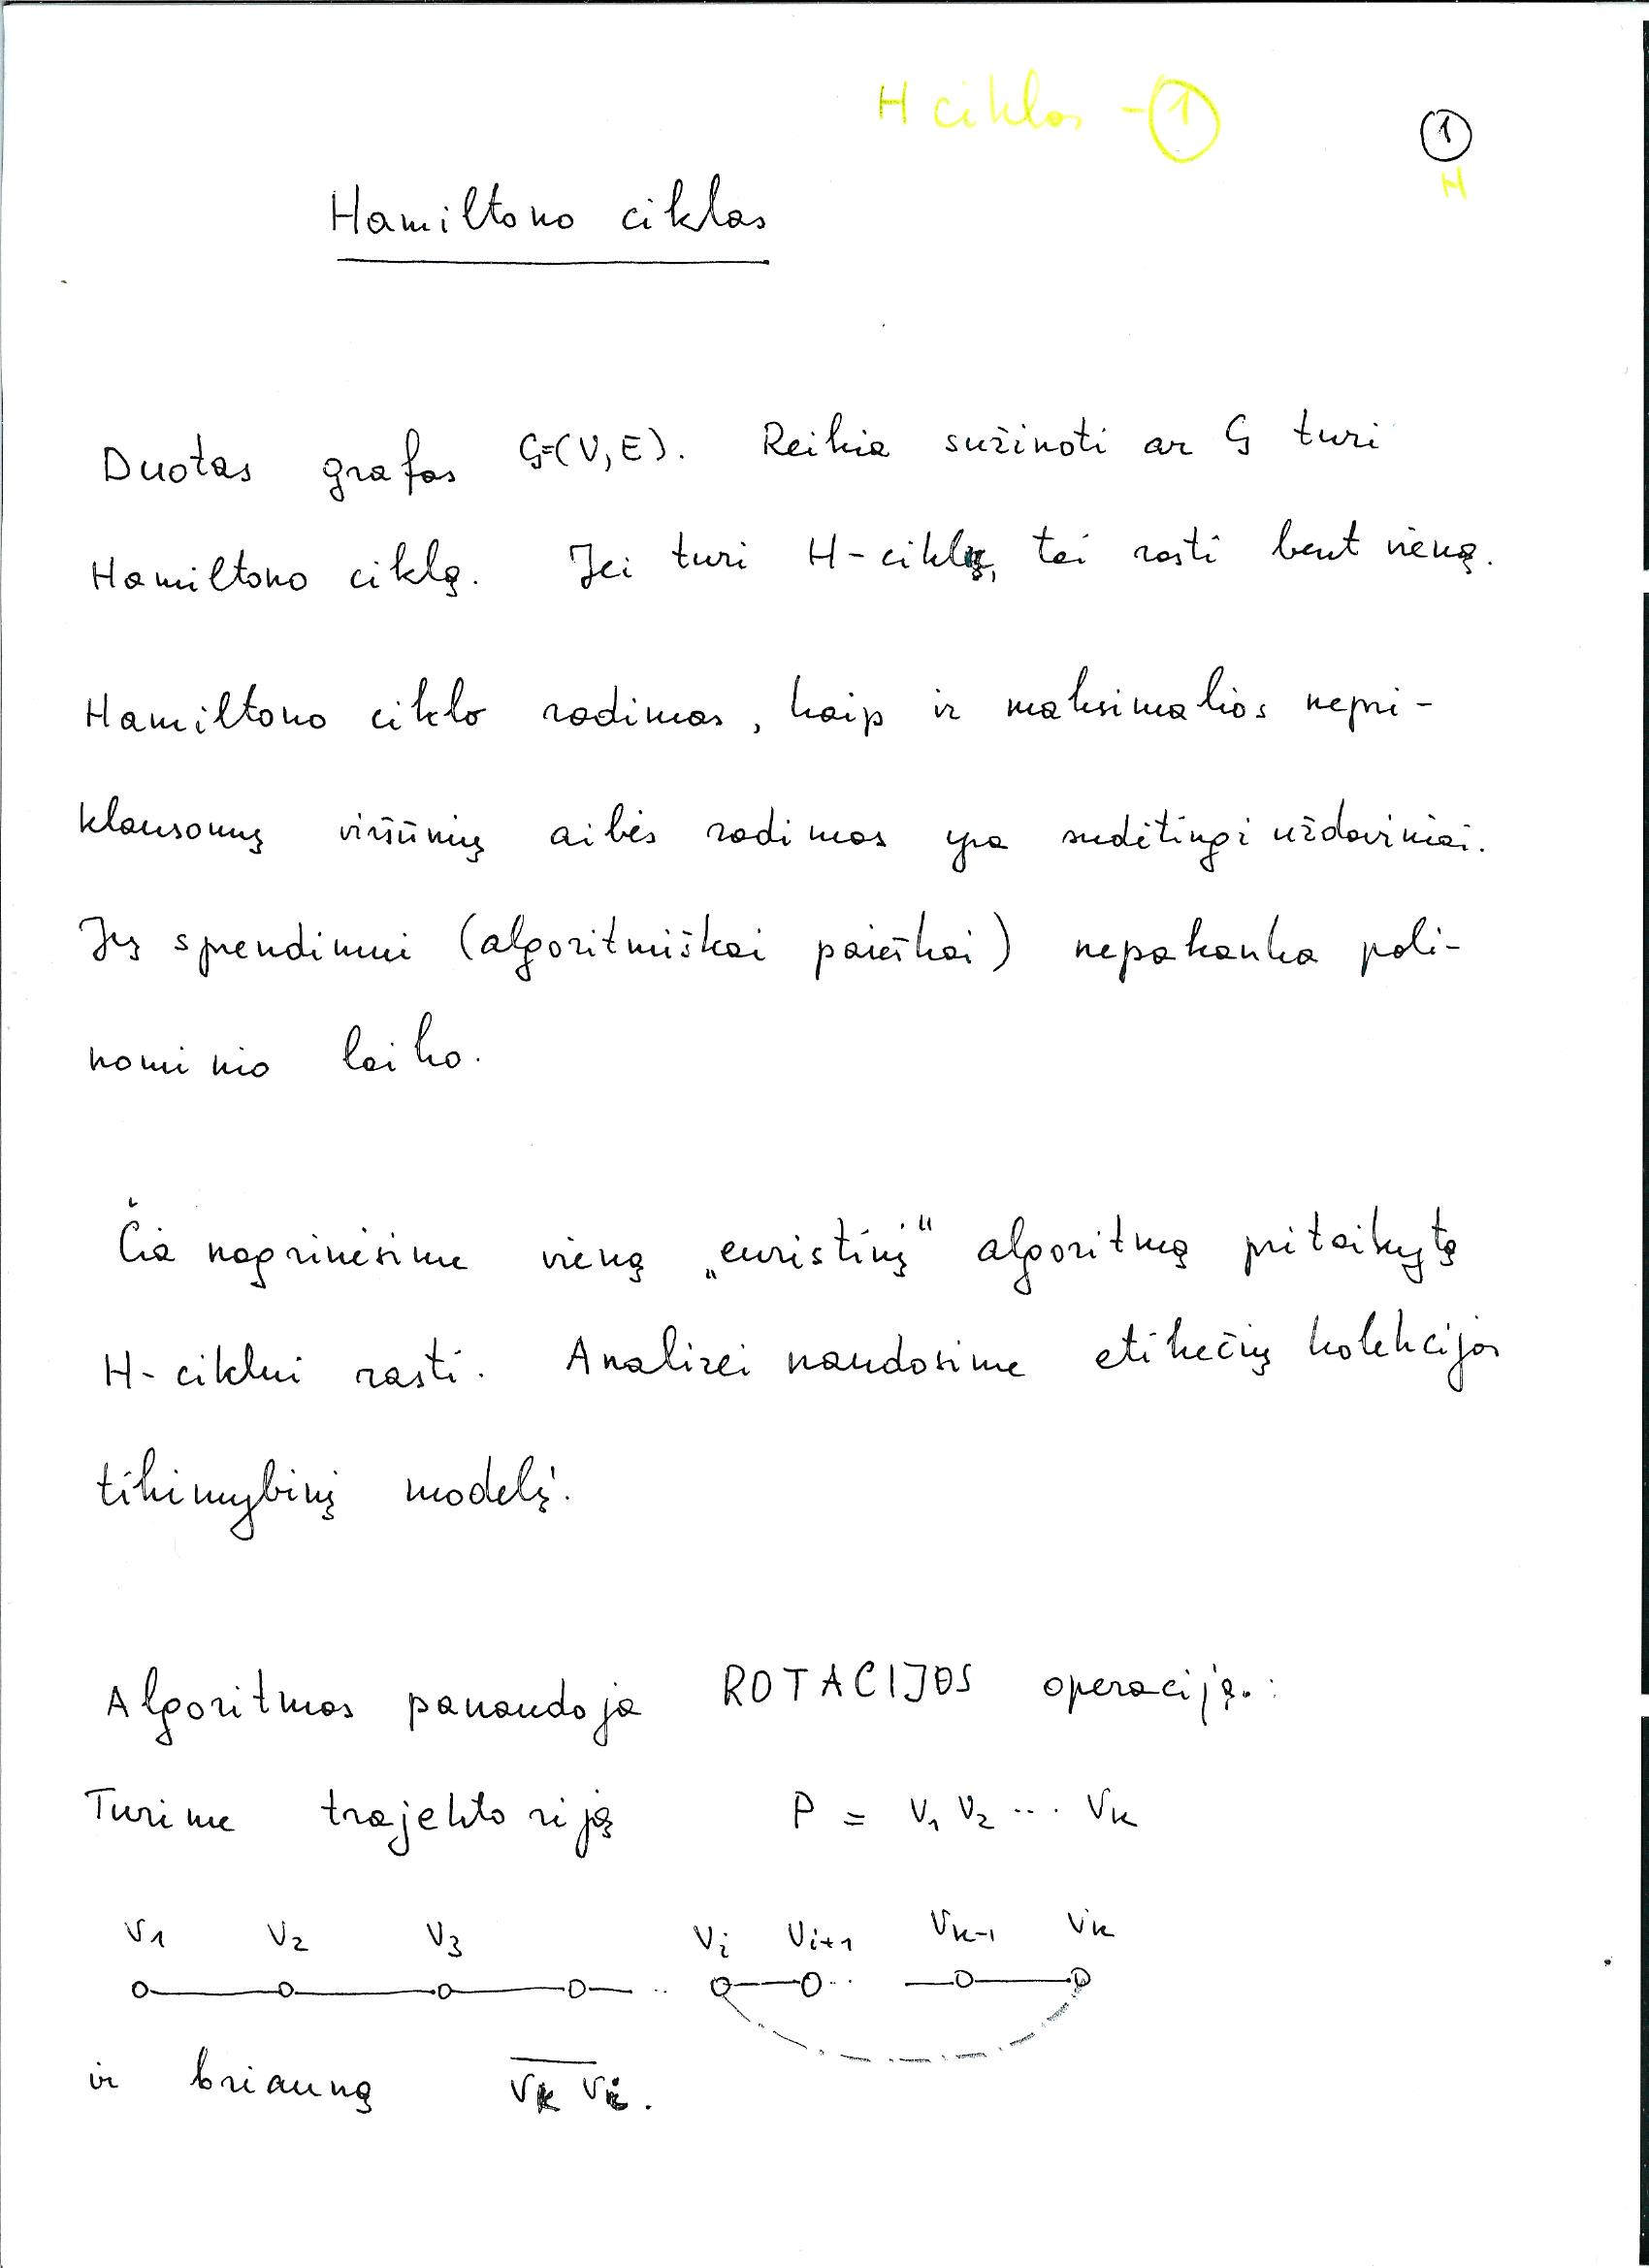 H ciklas - 1
1
H
Hamiltono ciklas
Duotas grafas G=(V,E). Reikia sužinoti ar G turi
Hamiltono ciklą. Jei turi H-ciklą, tai rasti bent vieną.
Hamiltono ciklo radimas, kaip ir maksimalios nepri-
klausomų viršūnių aibės radimas yra sudėtingi uždaviniai.
Jų sprendimui (algoritmiškai paieškai) nepakanka poli-
nominio laiko.
Čia nagrinėsime vieną „euristinį“ algoritmą pritaikytą
H-ciklui rasti. Analizei naudosime etikečių kolekcijos
tikimybinį modelį.
Algoritmas panaudoja ROTACIJOS operaciją.:
Turime trajektoriją P = V1 V2 ... Vk
V1 V2 V3 Vi Vi+1 Vk-1 Vk
ir briauną Vk Vi.